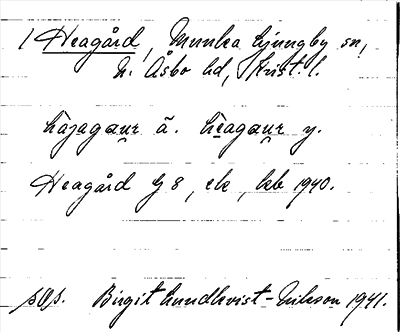 1 Heagård, Munka Ljungby sn,
N. Åsbo hd, Krist. l.
hèagaur y.
Heagård G 8, ek, kb 1940.
sOp. Birgit Lundkvist-Nilsson 1941.